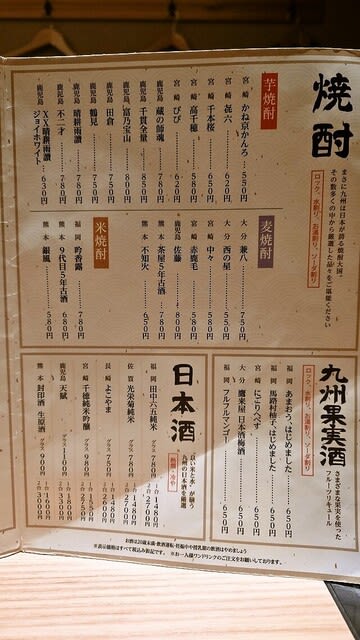 焼酎
まさに九州は日本が誇る焼酎大国。
その数多くの中から厳選した品々をご堪能ください
ロック、水割り、お湯割り、ソーダ割り
芋焼酎
宮崎 かね京かんろ 550円
宮崎 㐂六 620円
宮崎 千本桜 650円
宮崎 高千穂 580円
宮崎 びび 620円
鹿児島 蔵の師魂 780円
鹿児島 千貫全量 850円
鹿児島 富乃宝山 800円
鹿児島 田倉 750円
鹿児島 鶴見 750円
鹿児島 晴耕雨讀 780円
鹿児島 不二才 780円
鹿児島 XX晴耕雨讀
ジョイホワイト 630円
麦焼酎
大分 兼八 750円
大分 西の星 550円
宮崎 中々 580円
宮崎 赤鹿毛 580円
鹿児島 佐藤 800円
熊本 茶屋5年古酒 780円
熊本 不知火 650円
米焼酎
福岡 吟香露 780円
熊本 9代目5年古酒 680円
熊本 銀風 580円
九州果実酒
さまざまな果実を使った
フルーツリキュール
ロック、水割り、お湯割り、ソーダ割り
福岡 あまおう、はじめました 650円
福岡 馬路村柚子、はじめました 650円
宮崎 にごりへべす 650円
大分 鷹来屋 日本酒梅酒 650円
福岡 フルフルマンゴー 650円
日本酒
「良い米と水」が揃う
九州の日本酒を厳選
熱燗・冷や
福岡 田中六五純米 グラス 780円 1合 1480円
佐賀 光栄菊純米 グラス 780円 1合 1480円 2合 2700円
長崎 よこやま グラス 750円
宮崎 千徳純米吟醸 グラス 980円 1合 1550円 2合 2750円
鹿児島 天賦 グラス 1100円 1合 2000円 2合 3600円
熊本 封印酒 生原酒 グラス 900円 1合 1600円 2合 3000円
お酒は20歳未満・飲酒運転・妊娠中や授乳期の飲酒はやめましょう
※表示価格はすべて税込み表記です。 ※お一人様ワンドリンクのご注文をお願いしております。